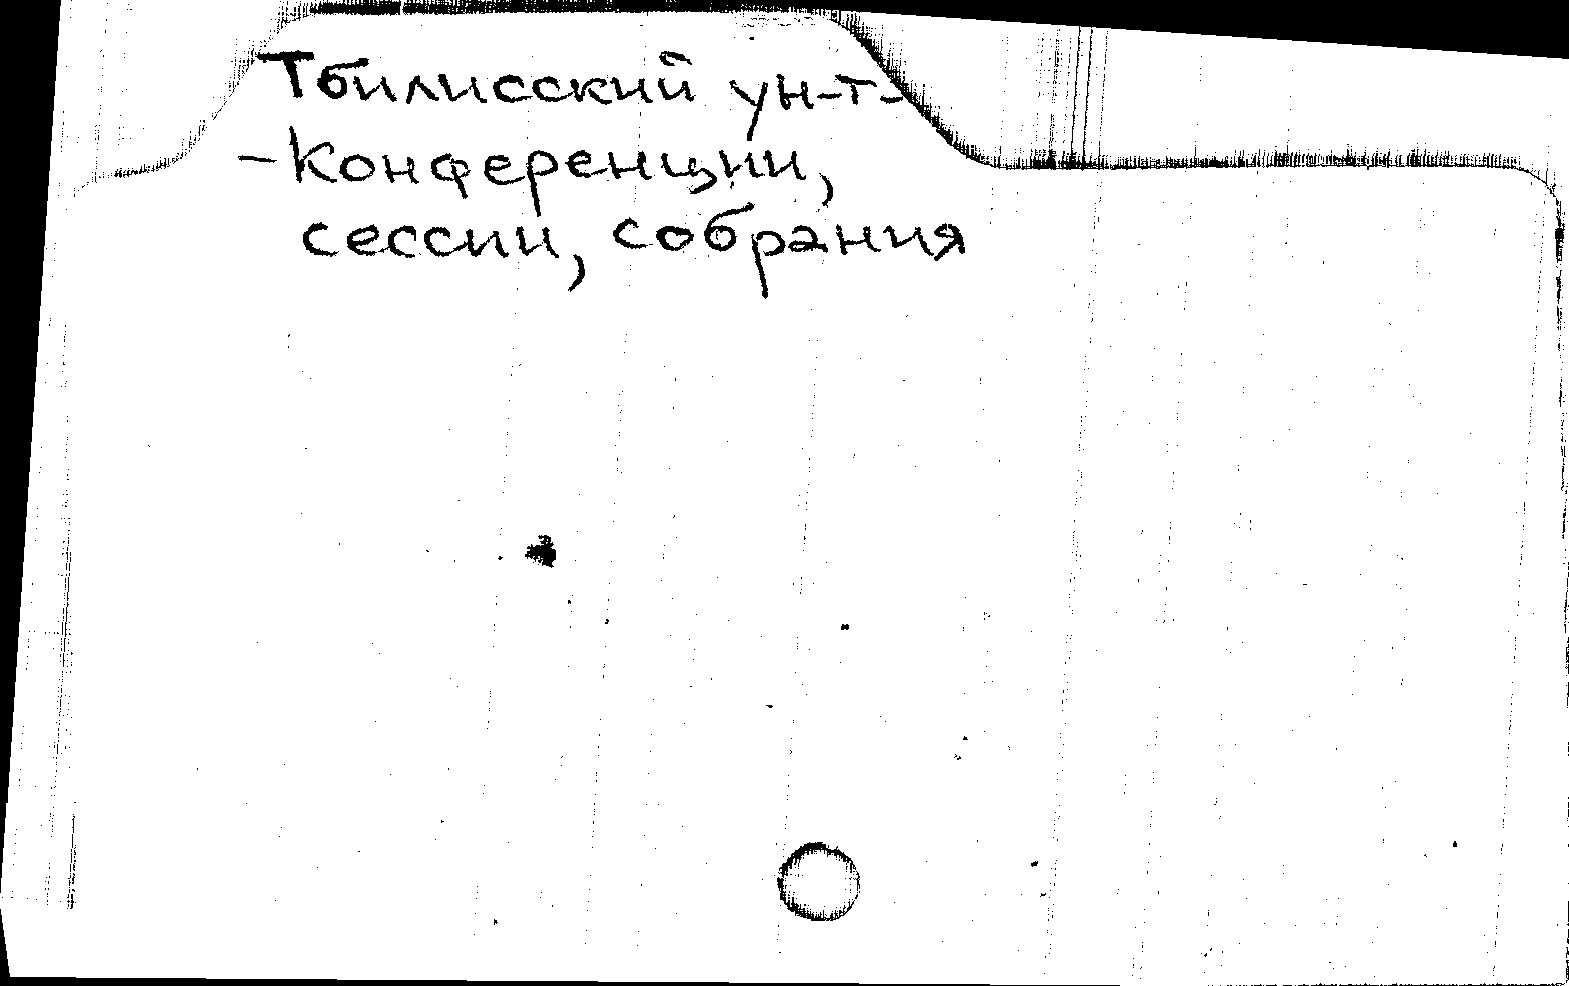 Тбилисский ун-т-
-Конференции,
сессии, собрания